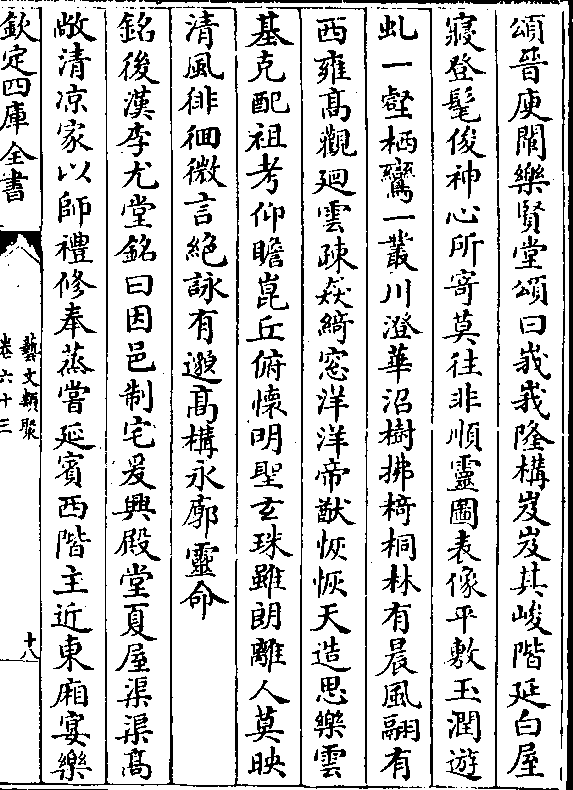 頌晉庾闡樂賢堂頌曰峩峩隆構岌岌其峻階延白屋
寢登髦俊神心所寄莫往非順靈圖表像平敷玉潤遊
虬一壑栖鸞一叢川澄華沼樹拂椅桐林有晨風翮有
西雍高觀廻雲疎森綺窓洋洋帝猷恢恢天造思樂雲
基克配祖考仰瞻崑丘俯懷明聖玄珠雖朗離人莫映
清風徘徊微言絶詠有邈高構永廓靈命
銘後漢李尤堂銘曰因邑制宅爰興殿堂夏屋渠渠高
敞清凉家以師禮修奉蒸嘗延賓西階主近東廂宴樂
欽定四庫全書
藝文類聚
卷六十三
十八